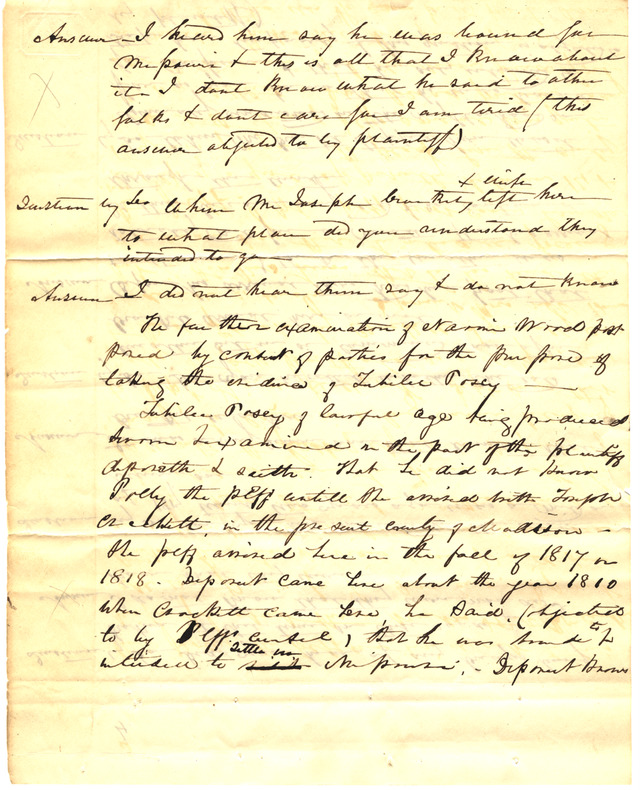 Answer - I heard him say he was bound for
Missouri & this is all that I know about
it - I dont know what he said to other
folks & dont care for I am tired (this
answer objected to by plaintiff)
& wife
Question by Same When Mr Joseph Crockett left here
to what place did you understand they
intended to go
Answer I did not hear them say & do not know
The further examination of Naomi Wood post
poned by consent of parties for the purpose of
taking the evidence of Jubilee Posey
Jubilee Posey of lawful age being produced
sworn & examined on the part of the plaintiff
deposeth & saith. That he did not know
Polly the plff untill she arrived with Joseph
Crockett, in the present county of Madison -
the plff arrived here in the fall of 1817 or
1818 - Deponent came here about the year 1810
when Crockett came here, he said, (objected
to by Plffs counsel) that he was bound to &
settle in
intended to Missouri. - Deponent knows